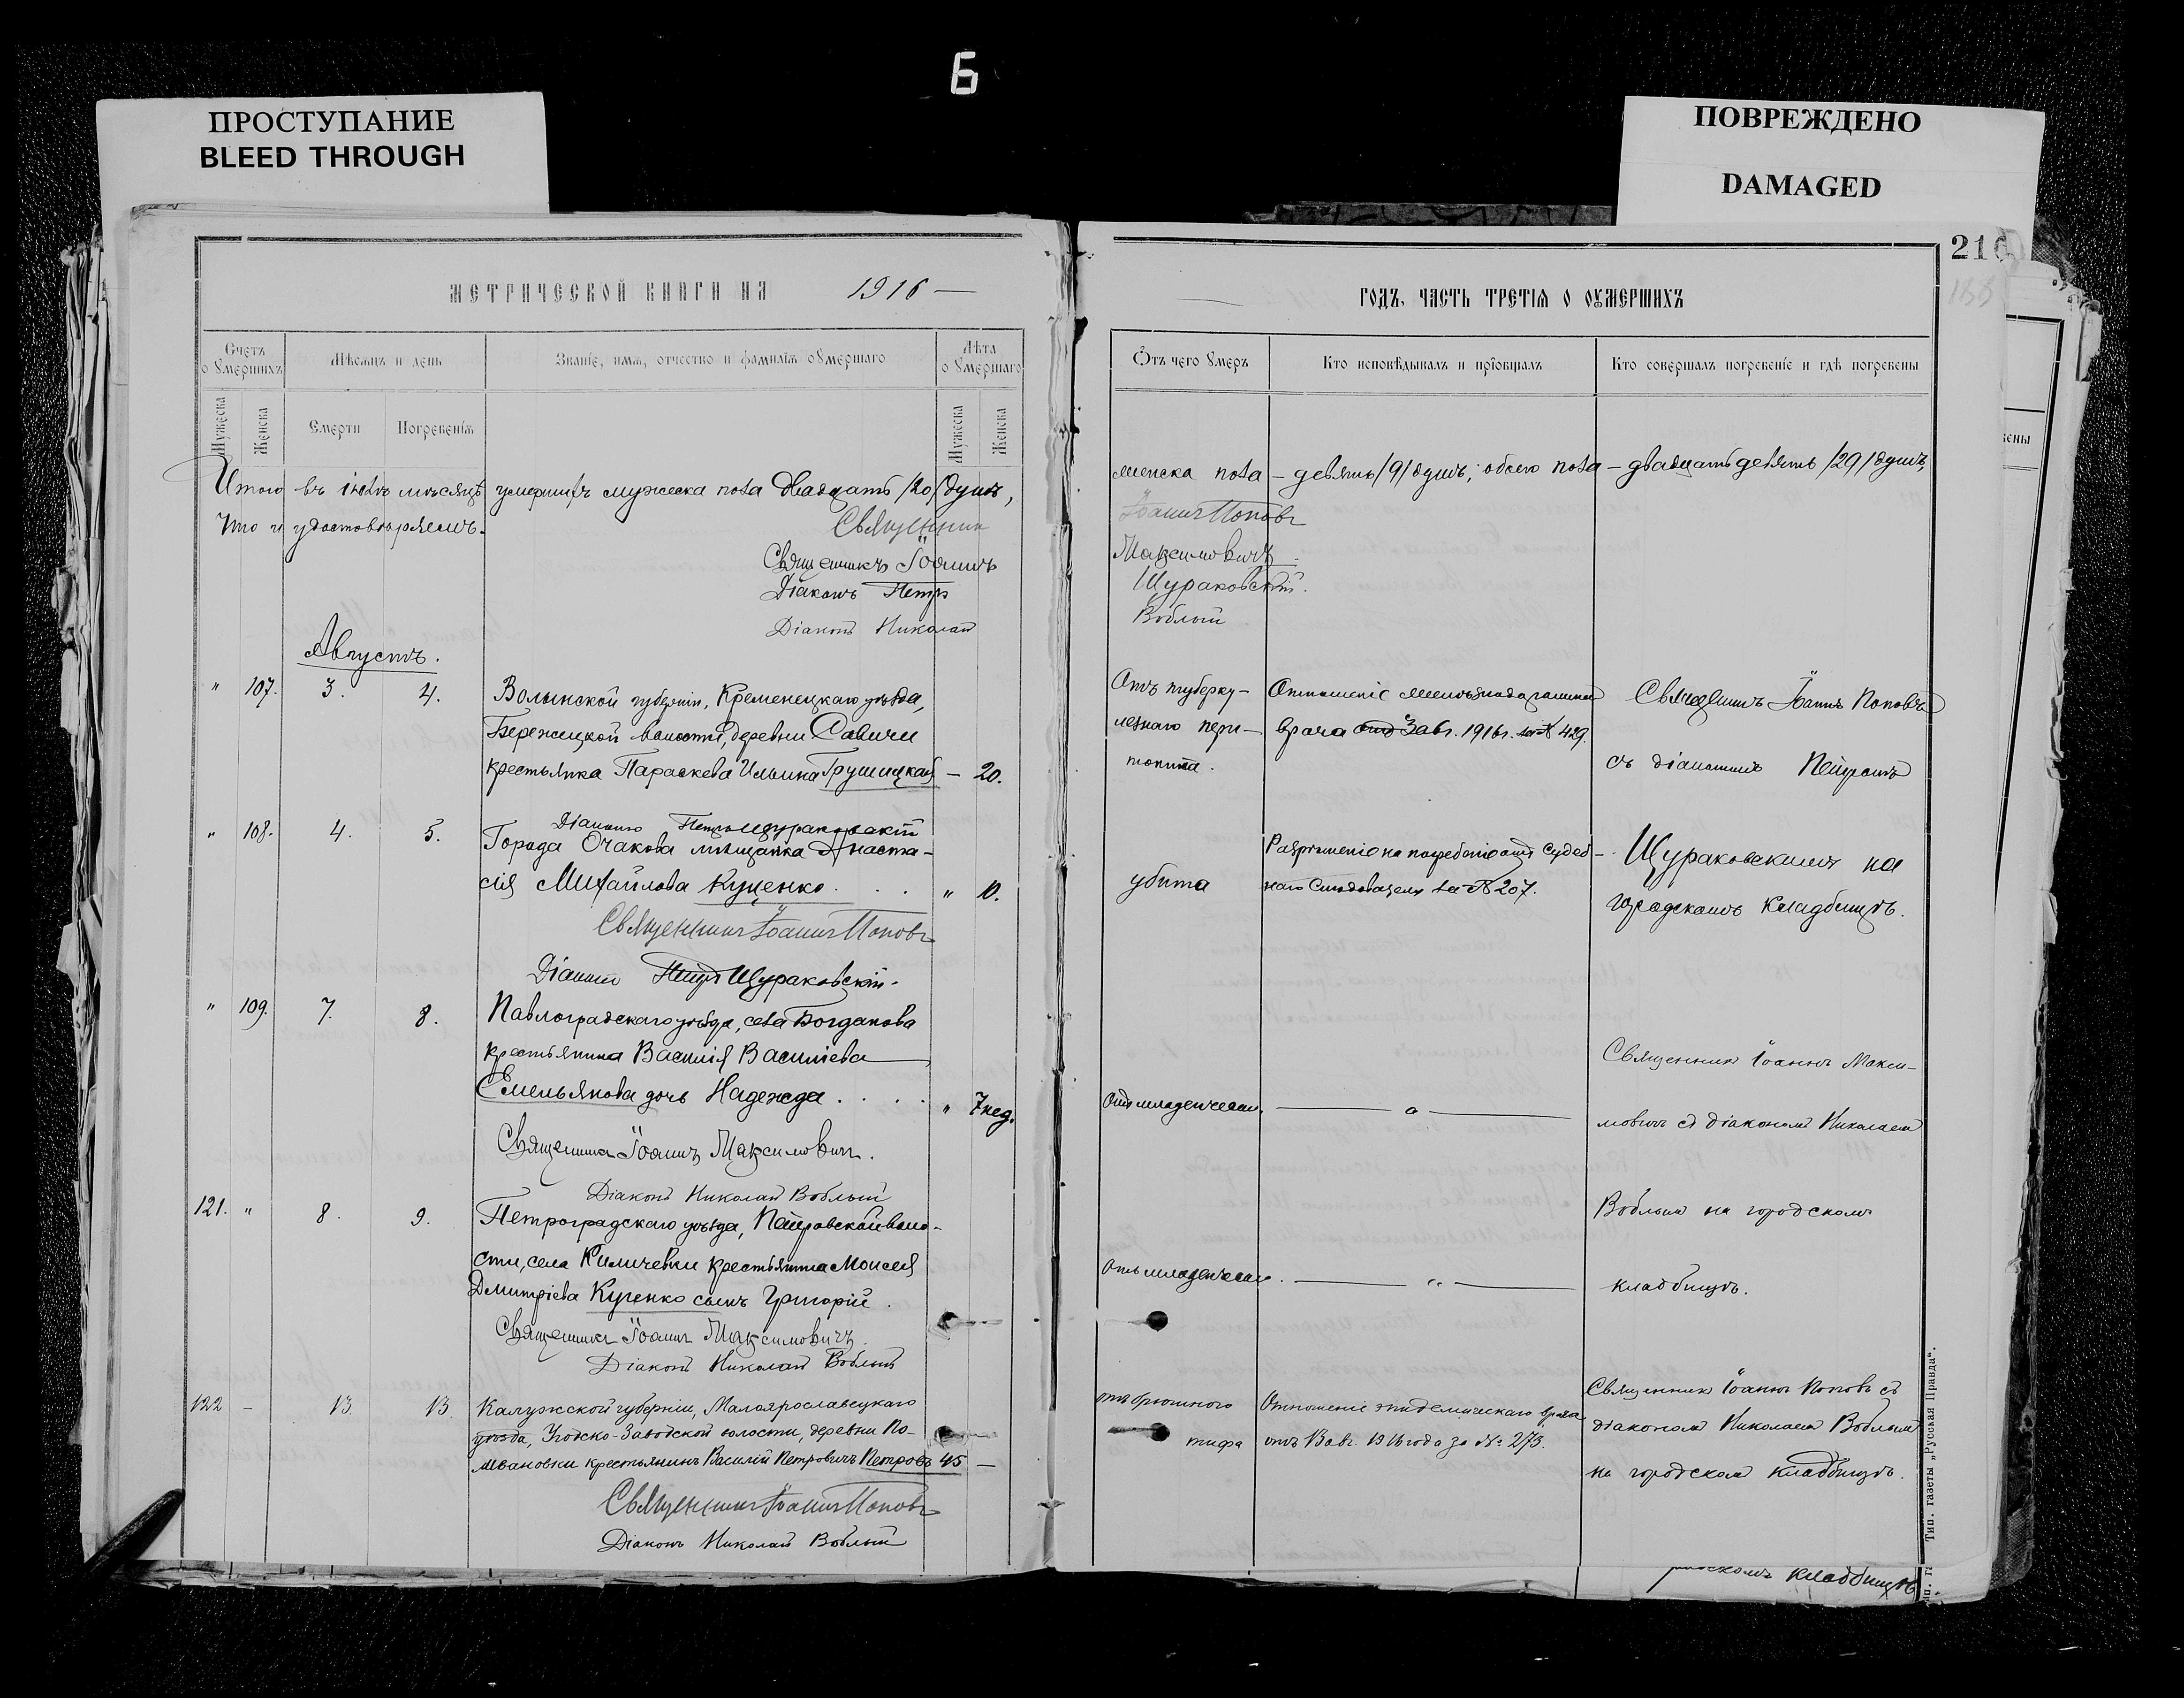 Б
ПРОСТУПАНИЕ
BLEED THROUGH
ПОВРЕЖДЕНО
DAMAGED
216
МЕТРИЧЕСКОЙ КНИГИ НА 1916 —
Счетъ о умершихъ
Мѣсяцъ и день
Званіе, имя, отчество и фамилія умершаго
Лѣта умершаго
Мужеска
Женска
Смерти
Погребенія
Мужеска
Женска
Итого въ іюлѣ мѣсяцѣ умершихъ мужеска пола двадцать /20/ душъ,
Что и удостовѣряемъ.
Священникъ
Священникъ Іоаннъ
Діаконъ Петръ
Діаконъ Николай
Августъ.
" 107. 3. 4. Волынской губерніи, Кременецкаго уѣзда,
Бережецкой волости, деревни Савичи
крестьянка Параскева Ильина Грушицкая — 20.
Діаконъ Петръ Щураковскій
" 108. 4. 5. Города Очакова мѣщанка Анаста-
сія Михайлова Куценко . . . " 10.
Священникъ Іоаннъ Поповъ
Діаконъ Петръ Щураковскій.
" 109. 7. 8. Павлоградскаго уѣзда, села Богданова
крестьянина Василія Василіева
Емельянова дочь Надежда . . . . " 7 нед.
Священникъ Іоаннъ Максимовичъ.
Діаконъ Николай Воблый
121. " 8. 9. Петроградскаго уѣзда, Петровской воло-
сти, села Киличевки крестьянина Моисея
Дмитріева Куценко сынъ Григорій.
Священникъ Іоаннъ Максимовичъ.
Діаконъ Николай Воблый
122 — 13. 13. Калужской губерніи, Малоярославецкаго
уѣзда, Угодско-Заводской волости, деревни По-
ливановки крестьянинъ Василій Петровичъ Петровъ 45 —
Священникъ Іоаннъ Поповъ
Діаконъ Николай Воблый
ГОДЪ, ЧАСТЬ ТРЕТІЯ О ОУМЕРШИХЪ
Отъ чего умеръ
Кто исповѣдывалъ и пріобщалъ
Кто совершалъ погребеніе и гдѣ погребены
женска пола — девять /9/ душъ; обоего пола — двадцать девять /29/ душъ,
Іоаннъ Поповъ
Максимовичъ.
Щураковскій.
Воблый
Отъ туберку-
лезнаго пери-
тонита.
Отношеніе
врача отъ 3 авг. 1916 г. за № 429.
Священникъ Іоаннъ Поповъ
съ діакономъ Петромъ
убита
Разрѣшеніе на погребеніе отъ Судеб-
наго Слѣдователя за № 207.
Щураковскимъ на
городскомъ кладбищѣ.
Отъ младенческ.
Священникъ Іоаннъ Макси-
мовичъ съ діакономъ Николаемъ
Воблымъ на городскомъ
Отъ младенческ. — " —
кладбищѣ.
отъ брюшного
тифа
Отношеніе эпидемическаго врача
отъ 13 авг. 1916 года за № 273.
Священникъ Іоаннъ Поповъ съ
діакономъ Николаемъ Воблымъ
на городскомъ кладбищѣ.
Тип. газеты „Русская Правда“.
кладбищѣ